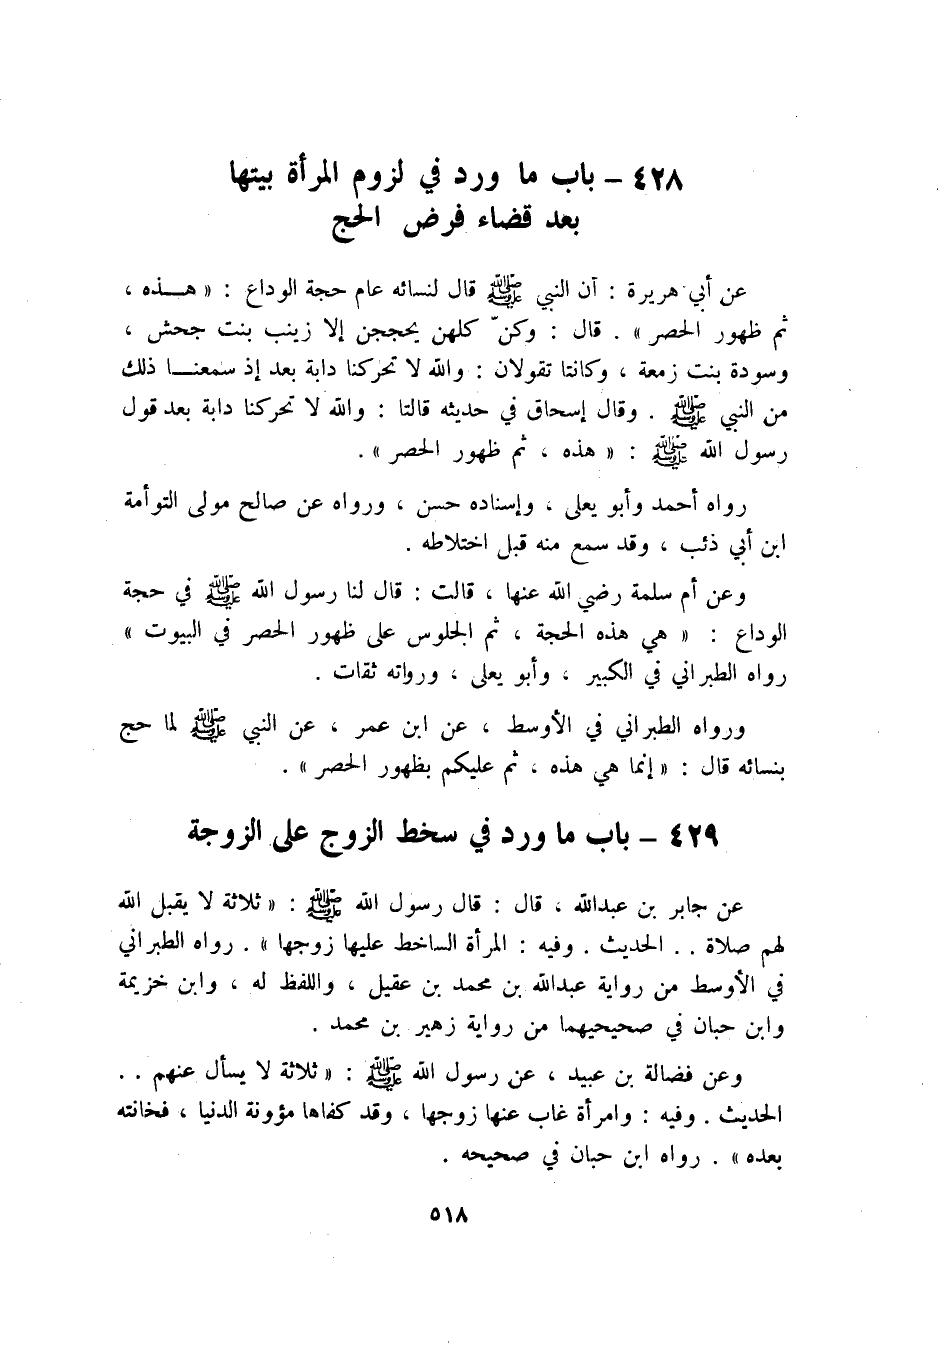 ٤٢٨ – باب ما ورد في لزوم المرأة بيتها
بعد قضاء فرض الحج
عن أبي هريرة : آن النبي ﷺ قال لنسائه عام حجة الوداع : « هـــذه ،
ثم ظهور الحصر » . قال : وكنّ كلهن يحججن إلا زينب بنت جحش ،
وسودة بنت زمعة ، وكانتا تقولان : والله لا تحركنا دابة بعد إذ سمعنــا ذلك
من النبي ﷺ . وقال إسحاق في حديثه قالتا : والله لا تحركنا دابة بعد قول
رسول الله ﷺ : « هذه ، ثم ظهور الحصر » .
رواه أحمد وأبو يعلى ، وإسناده حسن ، ورواه عن صالح مولى التوأمة
ابن أبي ذئب ، وقد سمع منه قبل اختلاطه .
وعن أم سلمة رضي الله عنها ، قالت : قال لنا رسول الله ﷺ في حجة
الوداع : « هي هذه الحجة ، ثم الجلوس على ظهور الحصر في البيوت »
رواه الطبراني في الكبير ، وأبو يعلى ، ورواته ثقات .
ورواه الطبراني في الأوسط ، عن ابن عمر ، عن النبي ﷺ لما حج
بنسائه قال : « إنما هي هذه ، ثم عليكم بظهور الحصر » .
٤٢٩ – باب ما ورد في سخط الزوج على الزوجة
عن جابر بن عبدالله ، قال : قال رسول الله ﷺ : « ثلاثة لا يقبل الله
لهم صلاة . . الحديث . وفيه : المرأة الساخط عليها زوجها » . رواه الطبراني
في الأوسط من رواية عبدالله بن محمد بن عقيل ، واللفظ له ، وابن خزيمة
وابن حبان في صحيحيهما من رواية زهير بن محمد .
وعن فضالة بن عبيد ، عن رسول الله ﷺ : « ثلاثة لا يسأل عنهم . .
الحديث . وفيه : وامرأة غاب عنها زوجها ، وقد كفاها مؤونة الدنيا ، فخانته
بعده » . رواه ابن حبان في صحيحه .
٥١٨